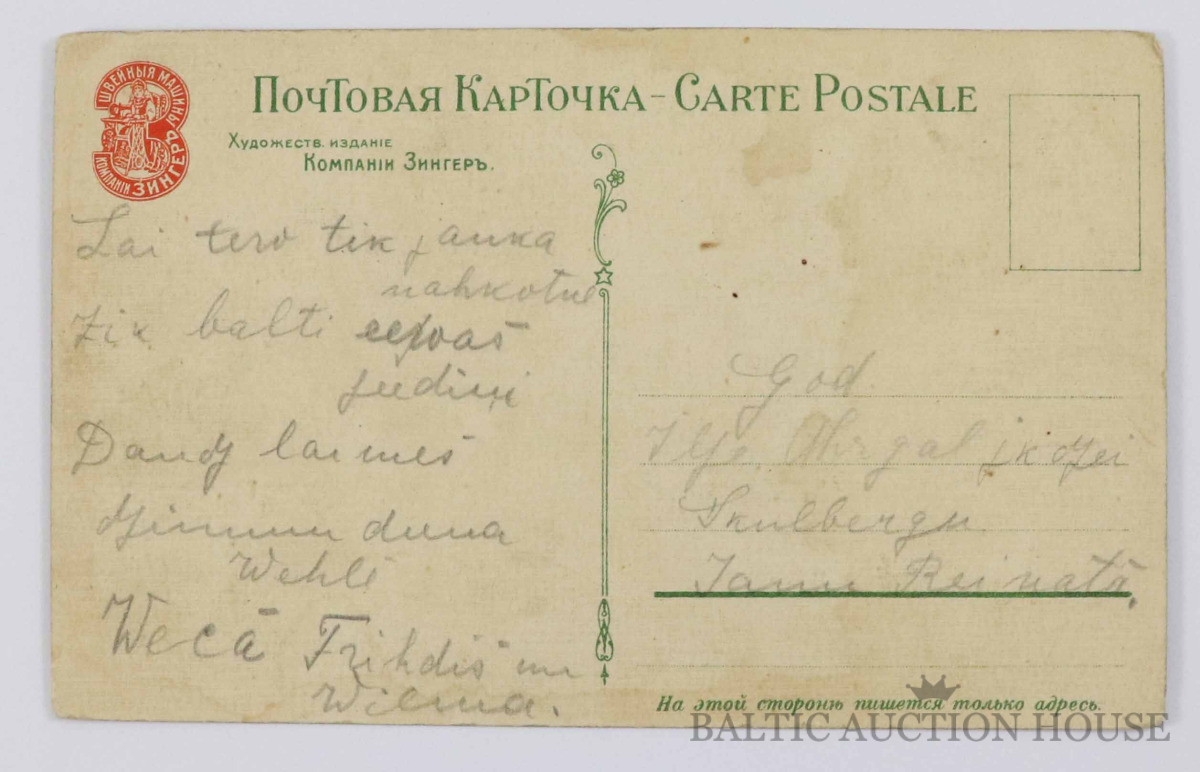 ШВЕЙНЫЯ МАШИНЫ
КОМПАНIИ ЗИНГЕРЪ
ПОЧТОВАЯ КАРТОЧКА – CARTE POSTALE
ХУДОЖЕСТВ. ИЗДАНIЕ
КОМПАНIИ ЗИНГЕРЪ.
Lai tewo tik jauka
nahkotne
tik balti
seedini
Daudz laimes
dzimum deena
Wehlē
Wecā Frihdis un
Wilma.
God
Ilse
Skulbergu
На этой сторонѣ пишется только адресъ.
BALTIC AUCTION HOUSE